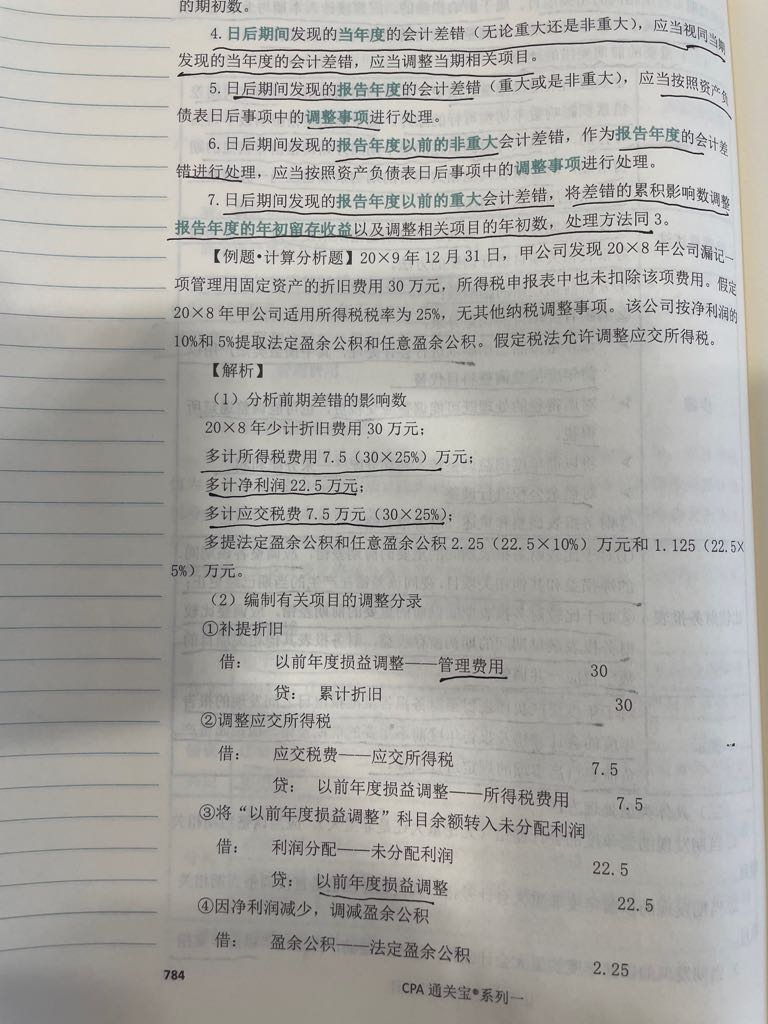 的期初数。
4.日后期间发现的当年度的会计差错（无论重大还是非重大），应当视同当期
发现的当年度的会计差错，应当调整当期相关项目。
5.日后期间发现的报告年度的会计差错（重大或是非重大），应当按照资产负
债表日后事项中的调整事项进行处理。
6.日后期间发现的报告年度以前的非重大会计差错，作为报告年度的会计差
错进行处理，应当按照资产负债表日后事项中的调整事项进行处理。
7.日后期间发现的报告年度以前的重大会计差错，将差错的累积影响数调整
报告年度的年初留存收益以及调整相关项目的年初数，处理方法同 3。
【例题·计算分析题】20×9 年 12 月 31 日，甲公司发现 20×8 年公司漏记一
项管理用固定资产的折旧费用 30 万元，所得税申报表中也未扣除该项费用。假定
20×8 年甲公司适用所得税税率为 25%，无其他纳税调整事项。该公司按净利润的
10%和 5%提取法定盈余公积和任意盈余公积。假定税法允许调整应交所得税。
【解析】
（1）分析前期差错的影响数
20×8 年少计折旧费用 30 万元；
多计所得税费用 7.5（30×25%）万元；
多计净利润 22.5 万元；
多计应交税费 7.5 万元（30×25%）；
多提法定盈余公积和任意盈余公积 2.25（22.5×10%）万元和 1.125（22.5×
5%）万元。
（2）编制有关项目的调整分录
①补提折旧
借： 以前年度损益调整——管理费用 30
贷： 累计折旧 30
②调整应交所得税
借： 应交税费——应交所得税 7.5
贷： 以前年度损益调整——所得税费用 7.5
③将“以前年度损益调整”科目余额转入未分配利润
借： 利润分配——未分配利润 22.5
贷： 以前年度损益调整 22.5
④因净利润减少，调减盈余公积
借： 盈余公积——法定盈余公积 2.25
784
CPA 通关宝®系列一